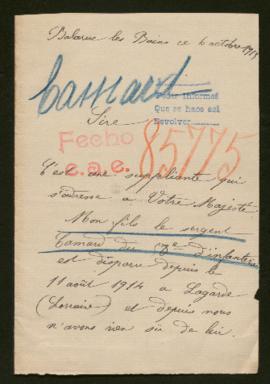 Balaruc les Bains ce 6 octobre 1915
Sire
Pedir informes
Que se hace así
Devolver
Fecho
e.a.e.
85775
C'est une suppliante qui
s'adresse à Votre Majesté
Mon fils le sergent
Camard du e d'infanterie
est disparu depuis le
11 août 1914 à Lagarde
(Lorraine) et depuis nous
n'avons rien su de lui.